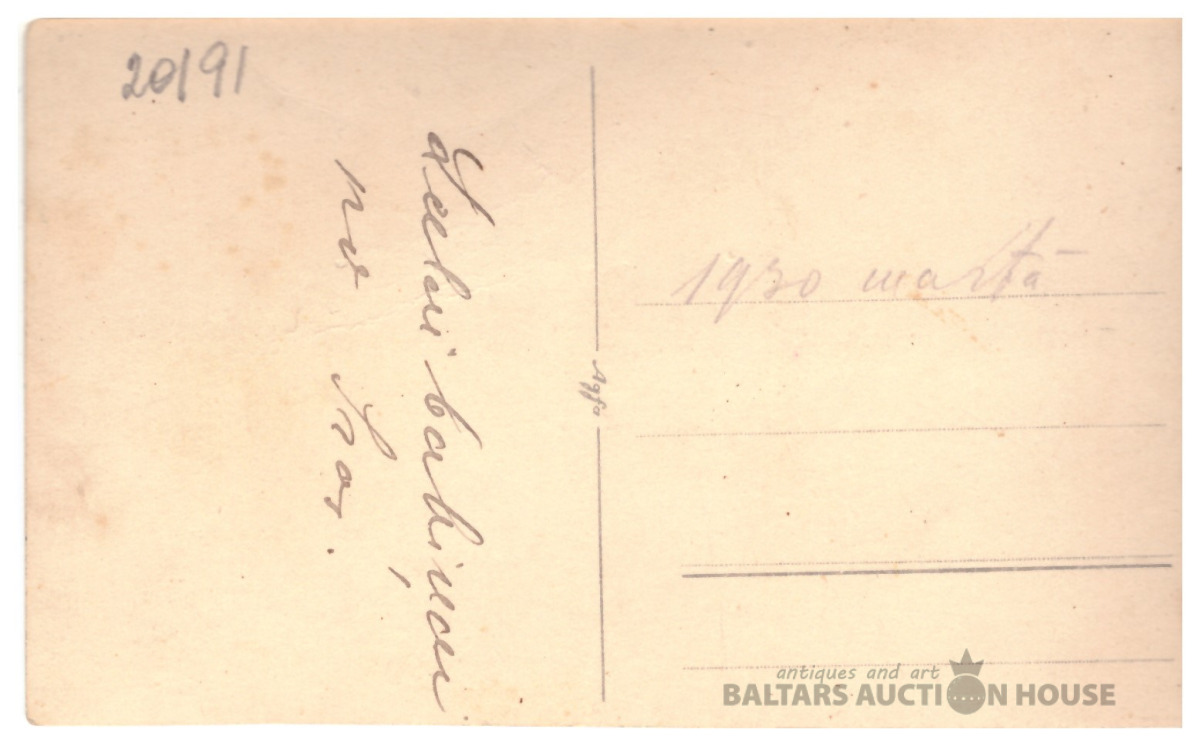 20/91
babiņai
no
Agfa
1930 martā
antiques and art
BALTARS AUCTION HOUSE